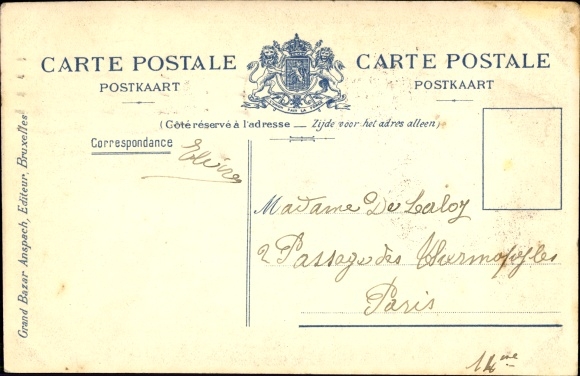 CARTE POSTALE
POSTKAART
CARTE POSTALE
POSTKAART
(Côté réservé à l'adresse — Zijde voor het adres alleen)
Correspondance
Elvire
Madame De Laloy
2 Passage des Thermopyles
Paris
14ème
Grand Bazar Anspach, Editeur, Bruxelles